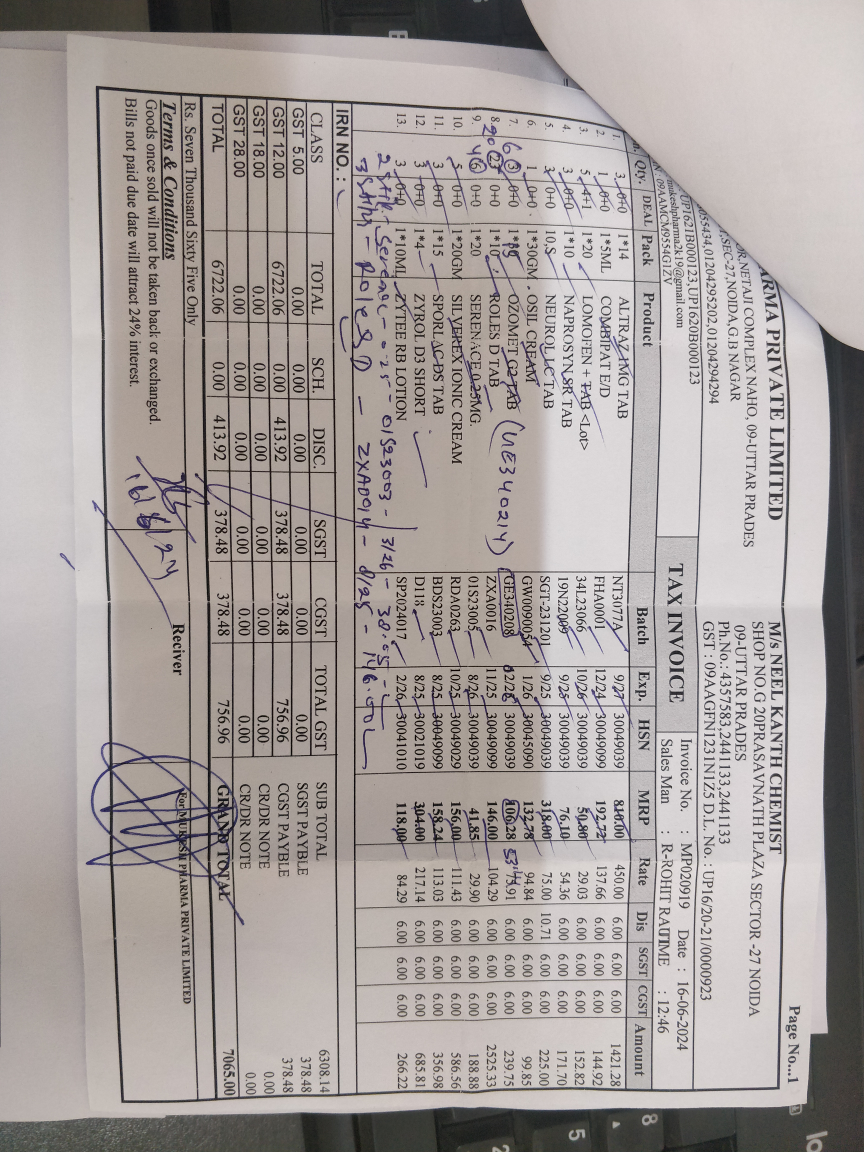 Page No...1
ARMA PRIVATE LIMITED
OR,NETAJI COMPLEX NAHO, 09-UTTAR PRADES
,SEC-27,NOIDA,G.B NAGAR
55434,01204295202,01204294294
UP1621B000123,UP1620B000123
mukeshpharma2k19@gmail.com
: 09AAMCM9554G1ZV
M/s NEEL KANTH CHEMIST
SHOP NO.G 20PRASAVNATH PLAZA SECTOR -27 NOIDA
09-UTTAR PRADES
Ph.No.: 4357583,2441133,2441133
GST : 09AAGFN1231N1Z5 D.L. No. : UP16/20-21/0000923
TAX INVOICE
Invoice No. : MP020919 Date : 16-06-2024
Sales Man : R-ROHIT RAUTIME : 12:46
n. Qty. DEAL Pack Product Batch Exp. HSN MRP Rate Dis SGST CGST Amount
1. 3 0+0 1*14 ALTRAZ 1MG TAB NT3077A 9/27 30049039 810.00 450.00 6.00 6.00 6.00 1421.28
2. 1 0+0 1*5ML COMBIPAT E/D FHA0001 12/24 30049099 192.72 137.66 6.00 6.00 6.00 144.92
3. 5 4+1 1*20 LOMOFEN + TAB <Lot> 34L23066 10/26 30049039 50.80 29.03 6.00 6.00 6.00 152.82
4. 3 0+0 1*10 NAPROSYN SR TAB 19N22009 9/25 30049039 76.10 54.36 6.00 6.00 6.00 171.70
5. 3 0+0 10,S NEUROL LC TAB SGT-231201 9/25 30049039 318.00 75.00 10.71 6.00 6.00 225.00
6. 1 0+0 1*30GM OSIL CREAM GW0090054 1/26 30045090 132.78 94.84 6.00 6.00 6.00 99.85
7. 3 0+0 OZOMET G2 TAB (UE340214) GE340208 02/26 30049039 106.28 75.91 6.00 6.00 6.00 239.75
60
8. 23 0+0 1*10 ROLES D TAB ZXA0016 11/25 30049099 146.00 104.29 6.00 6.00 6.00 2525.33
20
9. 6 0+0 1*20 SERENACE 0.25MG. 01S23005 8/26 30049039 41.85 29.90 6.00 6.00 6.00 188.88
4
10. 5 0+0 1*20GM SILVEREX IONIC CREAM RDA0263 10/25 30049029 156.00 111.43 6.00 6.00 6.00 586.56
11. 3 0+0 1*15 SPORLAC-DS TAB BDS23003 8/25 30049099 158.24 113.03 6.00 6.00 6.00 356.98
12. 3 0+0 1*4 ZYROL D3 SHORT D118 8/25 30021019 304.00 217.14 6.00 6.00 6.00 685.81
13. 3 0+0 1*10ML ZYTEE RB LOTION SP2024017 2/26 30041010 118.00 84.29 6.00 6.00 6.00 266.22
2 Strip - Serenac - 0.25 - 01S23003 - 3/26 - 38.05
3 Strip - Roles D - ZXAD014 - 8/25 - 146.00
IRN NO. :
CLASS TOTAL SCH. DISC. SGST CGST TOTAL GST
GST 5.00 0.00 0.00 0.00 0.00 0.00 0.00
GST 12.00 6722.06 0.00 413.92 378.48 378.48 756.96
GST 18.00 0.00 0.00 0.00 0.00 0.00 0.00
GST 28.00 0.00 0.00 0.00 0.00 0.00 0.00
TOTAL 6722.06 0.00 413.92 378.48 378.48 756.96
SUB TOTAL 6308.14
SGST PAYBLE 378.48
CGST PAYBLE 378.48
CR/DR NOTE 0.00
CR/DR NOTE 0.00
GRAND TOTAL 7065.00
Rs. Seven Thousand Sixty Five Only
Terms & Conditions
Goods once sold will not be taken back or exchanged.
Bills not paid due date will attract 24% interest.
16/6/24
Reciver
For MUKESH PHARMA PRIVATE LIMITED